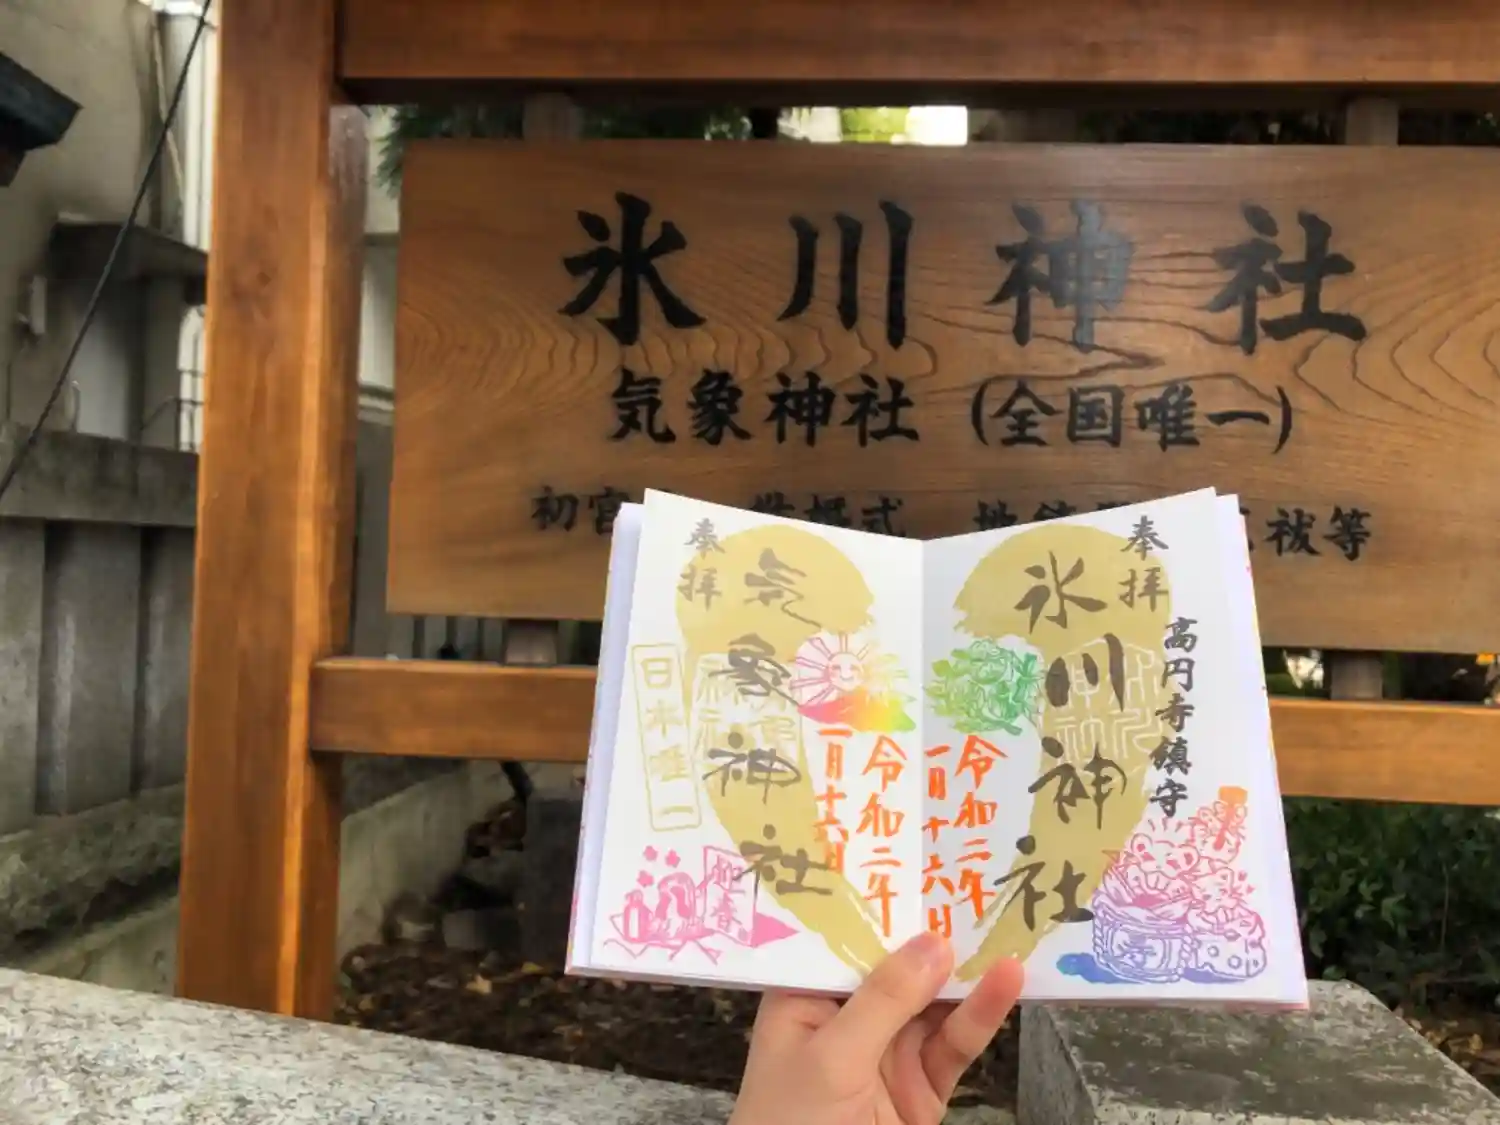 氷川神社
気象神社 (全国唯一)
初宮
祓等
奉拝
氷川神社
高円寺鎮守
令和二年
一月十六日
奉拝
気象神社
令和二年
一月十六日
日本唯一
迎春